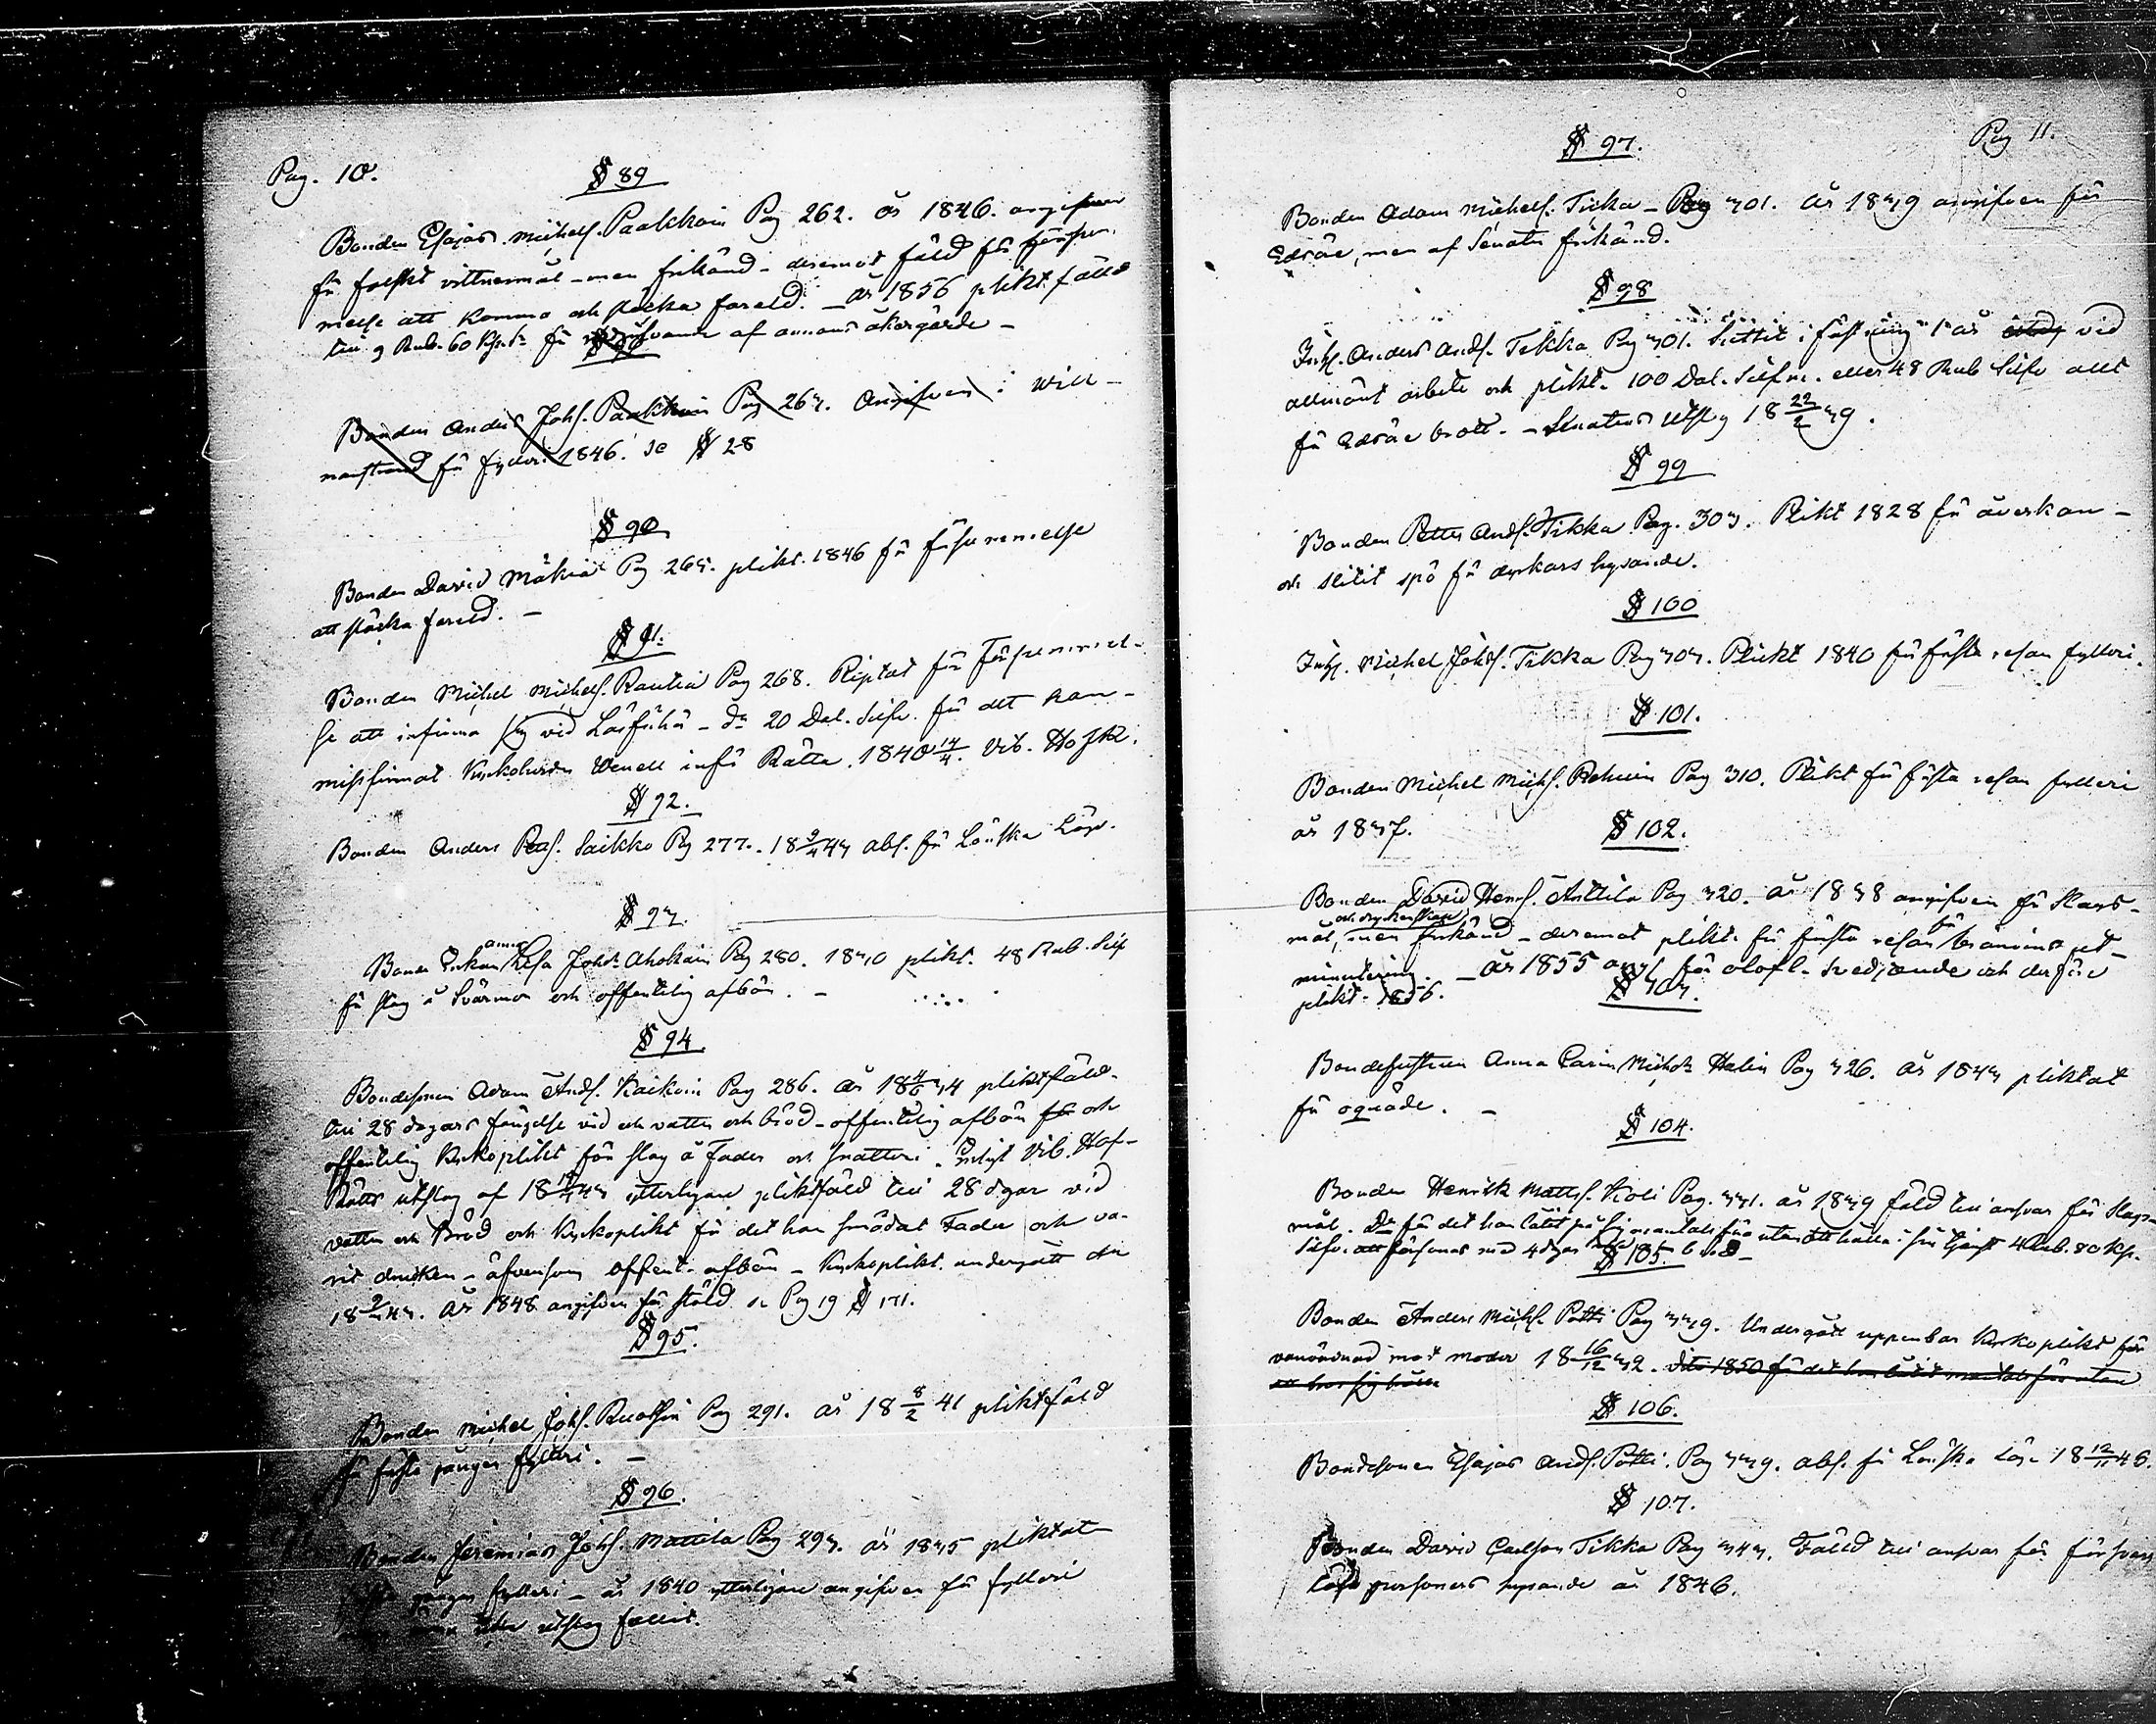 Pag. 10.
§ 89
Bonden Esajas Michelss. Paakkoin Pag 262. år 1846. angifven
för falskt vittnesmål - men frikänd - deremot fäld för försum-
melse att komma och släcka foreld. - år 1856 pliktfälld
till 9 Rub. 60 kop. för af annans åkergärde -
Bonden Anders Johs. Paakkoin Pag 263. Angifven i Will-
manstrand för fylleri 1846. se § 28
§ 90
Bonden David Mäkiä Pag 265. plikt. 1846 för försummelse
att släcka foreld. -
§ 91.
Bonden Michel Michelss. Rautia Pag 268. Pliktat för Försummel-
se att infinna sig vid Läsförhör - do 20 Dal. Silfr. för det han
missfirmat Kyrkoherden Wenell inför Rätta. 1840 14/4. Vib. HofR.
§ 92.
Bonden Anders Saikko Pag 277. 18 9/4 43 abs. för Lönska Läge.
§ 93.
Bonde Enkan anna Lisa Johsdr Ahokain Pag 280. 1830 plikt. 48 Rub. Silf
för slag å Svärmor och offentelig afbön. -
§ 94.
Bondesonen Adam Ands. Kaikoin Pag 286. år 18 34 pliktfäld
till 28 dagars fängelse vid vatten och bröd - offentelig afbön för och
offentelig Kyrkoplikt för slag å Fader och svalleri. Enligt Vib. Hof-
Rätts utslag af 18 43 ytterligare pliktfäld till 28 dgar vid
vatten och Bröd och Kyrkoplikt för det han smädat Fader och va-
rit drucken - äfvensom offent. afbön - Kyrkoplikt. undergått den
18 2/4 43. år 1848 angifven för stöld se Pag 19 § 171.
§ 95.
Bonden Michel Johs. Ruohoin Pag 291. år 18 8/2 41 pliktfäld
för första gången fylleri. -
§ 96.
Bonden Jeremias Johs. Mattila Pag 293. år 1835 pliktat
gången fylleri - år 1840 ytterligare angifven för fylleri
utslag fallit.
Pag 11.
§ 97.
Bonden Adam Michelss. Tikka - Pag 301. år 1839 angifven för
Edsöre, men af Senaten frikänd.
§ 98
Inhs. Anders Ands. Tikka Pag 301. Suttit i fästning 1 år vid
allmänt arbete och plikt. 100 Dal. Silfm. eller 48 Rub Silfr allt
för Edsöre brott. - Senatens Utslag 18 22/2 39.
§ 99
Bonden Petter Ands. Tikka Pag. 303. Plikt 1828 för åverkan -
och slitit spö för dyrkars hysande.
§ 100
Inhs. Michel Johss. Tikka Pag 303. Plikt 1840 för första resan fylleri.
§ 101.
Bonden Michel Michs. Rehuin Pag 310. Plikt för första resan fylleri
år 1837.
§ 102.
Bonden David Hens. Anttila Pag 320. år 1838 angifven för slags-
mål, och dryckenskap men frikänd - deremot plikt. för första resan för bränvins ut-
minutering. - År 1855 angf för olofl. Svedjande och derföre
plikt. 1856.
§ 103.
Bondehustrun Anna Carin Michdr Halin Pag 326. år 1843 pliktat
för oqväde. -
§ 104.
Bonden Henrik Matts. Koli Pag. 331. år 1839 fäld till ansvar för Slags-
mål. Do för det han låtit 4 Rub. 80 kop.
Silfr. att försonas med 4 dgar
§ 105.
Bonden Anders Michs. Pätti Pag 339. Undergått uppenbar Kyrkoplikt för
vanvördnad mot moder 18 16/12 32. dito 1850 för det han låtit utan
att hos sig hålla
§ 106.
Bondesonen Esajas Ands. Pätti. Pag 339. abs. för Lönska Läge 18 12/11 45.
§ 107.
Bonden David Carlson Tikka Pag 343. Fälld till ansvar för försvars-
lös persons hysande år 1846.